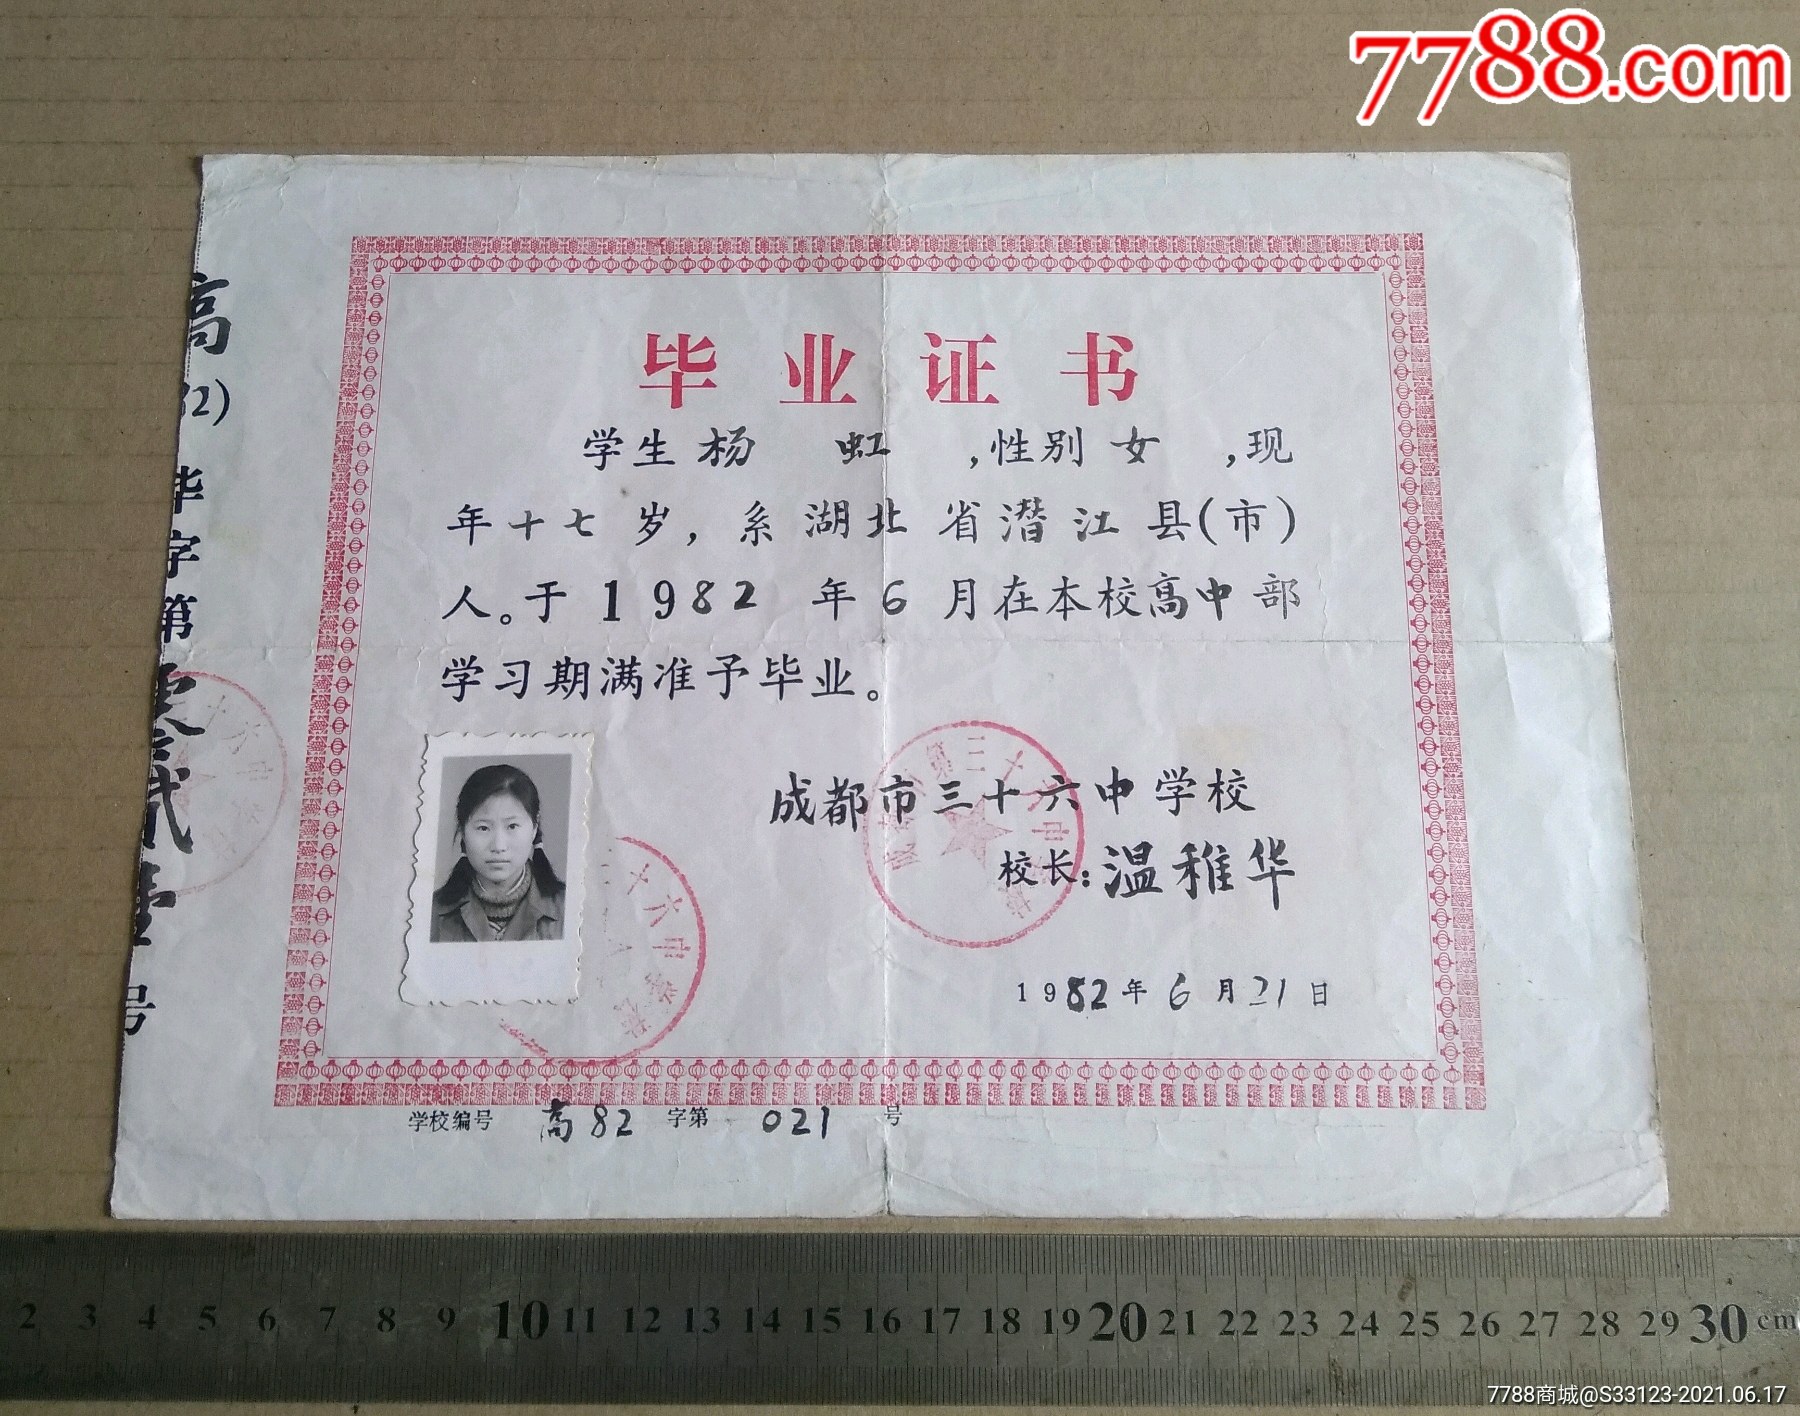 7788.com
毕业证书
学生杨 虹 ,性别女 ,现
年十七岁,系湖北省潜江县(市)
人。于1982年6月在本校高中部
学习期满准予毕业。
成都市三十六中学校
校长:温稚华
1982年6月21日
学校编号 高82 字第 021 号
高
82)
毕
字
第
零
贰
壹
号
第三十六中
十六中学校
十六中
2 3 4 5 6 7 8 9 10 11 12 13 14 15 16 17 18 19 20 21 22 23 24 25 26 27 28 29 30 cm
7788商城@S33123-2021.06.17